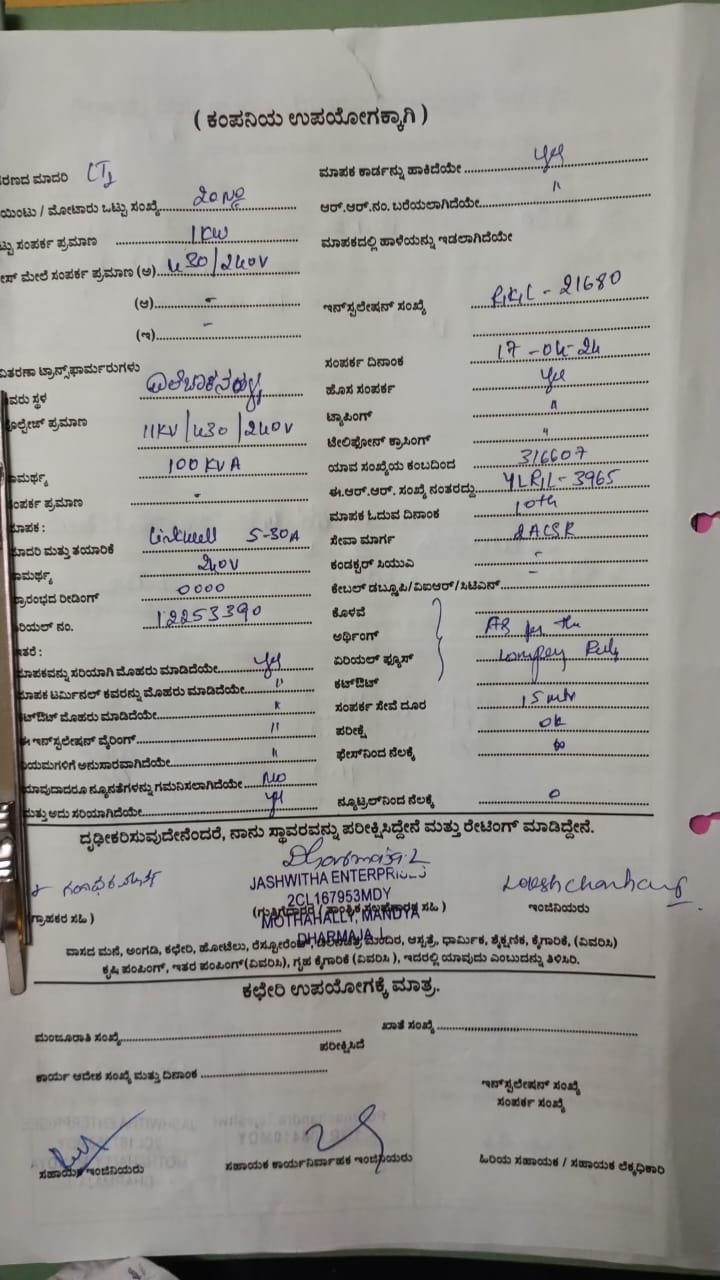 ( ಕಂಪನಿಯ ಉಪಯೋಗಕ್ಕಾಗಿ )
ರಣದ ಮಾದರಿ LT2 ಮಾಪಕ ಕಾರ್ಡನ್ನು ಹಾಕಿದೆಯೇ Yes
ಯಿಂಟು / ಮೋಟಾರು ಒಟ್ಟು ಸಂಖ್ಯೆ 20 No ಆರ್.ಆರ್.ನಂ. ಬರೆಯಲಾಗಿದೆಯೇ "
ಟ್ಟು ಸಂಪರ್ಕ ಪ್ರಮಾಣ 1KW ಮಾಪಕದಲ್ಲಿ ಹಾಳೆಯನ್ನು ಇಡಲಾಗಿದೆಯೇ
ೇಸ್ ಮೇಲೆ ಸಂಪರ್ಕ ಪ್ರಮಾಣ (ಅ) 430/240V
(ಆ) - ಇನ್‌ಸ್ಟಲೇಷನ್ ಸಂಖ್ಯೆ RKL - 21680
(ಇ) -
ವಿತರಣಾ ಟ್ರಾನ್ಸ್‌ಫಾರ್ಮರುಗಳು ಸಂಪರ್ಕ ದಿನಾಂಕ 17-04-24
ವರು ಸ್ಥಳ ಹೊಸ ಸಂಪರ್ಕ Yes
ೋಲ್ಟೇಜ್ ಪ್ರಮಾಣ 11KV/430/240V ಟ್ಯಾಪಿಂಗ್ "
ಟೇಲಿಫೋನ್ ಕ್ರಾಸಿಂಗ್ "
ಾಮರ್ಥ್ಯ 100 KVA ಯಾವ ಸಂಖ್ಯೆಯ ಕಂಬದಿಂದ 316607
ಸಂಪರ್ಕ ಪ್ರಮಾಣ - ಈ.ಆರ್.ಆರ್. ಸಂಖ್ಯೆ ನಂತರದ್ದು YLRIL-3965
ಮಾಪಕ : ಮಾಪಕ ಓದುವ ದಿನಾಂಕ 10th
ಮಾದರಿ ಮತ್ತು ತಯಾರಿಕೆ Linkwell 5-30A ಸೇವಾ ಮಾರ್ಗ 2ACSR
ಾಮರ್ಥ್ಯ 240V ಕಂಡಕ್ಟರ್ ಸಿಯುಎ -
ಪ್ರಾರಂಭದ ರೀಡಿಂಗ್ 0000 ಕೇಬಲ್ ಡಬ್ಲೂಪಿ/ವಿಐಆರ್/ಸಿಟಿಎನ್ -
ರಿಯಲ್ ನಂ. 12253390 ಕೊಳವೆ
ಇತರೆ : ಅರ್ಥಿಂಗ್ As per the
ಮಾಪಕವನ್ನು ಸರಿಯಾಗಿ ಮೊಹರು ಮಾಡಿದೆಯೇ Yes ಏರಿಯಲ್ ಫ್ಯೂಸ್ Company Rules
ಮಾಪಕ ಟರ್ಮಿನಲ್ ಕವರನ್ನು ಮೊಹರು ಮಾಡಿದೆಯೇ " ಕಟ್‌ಔಟ್
ಕಟ್‌ಔಟ್ ಮೊಹರು ಮಾಡಿದೆಯೇ " ಸಂಪರ್ಕ ಸೇವೆ ದೂರ 15 mtr
ಈ ಇನ್‌ಸ್ಟಲೇಷನ್ ವೈರಿಂಗ್ " ಪರೀಕ್ಷೆ ok
ನಿಯಮಗಳಿಗೆ ಅನುಸಾರವಾಗಿದೆಯೇ " ಫೇಸ್‌ನಿಂದ ನೆಲಕ್ಕೆ
ಯಾವುದಾದರೂ ನ್ಯೂನತೆಗಳನ್ನು ಗಮನಿಸಲಾಗಿದೆಯೇ No
ಮತ್ತು ಅದು ಸರಿಯಾಗಿದೆಯೇ Yes ನ್ಯೂಟ್ರಲ್‌ನಿಂದ ನೆಲಕ್ಕೆ 0
ದೃಢೀಕರಿಸುವುದೇನೆಂದರೆ, ನಾನು ಸ್ಥಾವರವನ್ನು ಪರೀಕ್ಷಿಸಿದ್ದೇನೆ ಮತ್ತು ರೇಟಿಂಗ್ ಮಾಡಿದ್ದೇನೆ.
Dharmaja L
JASHWITHA ENTERPRISES
2CL167953MDY
(ಗ್ರಾಹಕರ ಸಹಿ ) ಇಂಜಿನಿಯರು
MOTHAHALLY, MANDYA
DHARMAJA L
ವಾಸದ ಮನೆ, ಅಂಗಡಿ, ಕಛೇರಿ, ಹೋಟೆಲು, ರೆಸ್ಟೋರೆಂಟ್, ಮಂದಿರ, ಆಸ್ಪತ್ರೆ, ಧಾರ್ಮಿಕ, ಶೈಕ್ಷಣಿಕ, ಕೈಗಾರಿಕೆ, (ವಿವರಿಸಿ)
ಕೃಷಿ ಪಂಪಿಂಗ್, ಇತರ ಪಂಪಿಂಗ್(ವಿವರಿಸಿ), ಗೃಹ ಕೈಗಾರಿಕೆ (ವಿವರಿಸಿ ), ಇದರಲ್ಲಿ ಯಾವುದು ಎಂಬುದನ್ನು ತಿಳಿಸಿರಿ.
ಕಛೇರಿ ಉಪಯೋಗಕ್ಕೆ ಮಾತ್ರ.
ಮಂಜೂರಾತಿ ಸಂಖ್ಯೆ ಖಾತೆ ಸಂಖ್ಯೆ
ಪರೀಕ್ಷಿಸಿದೆ
ಕಾರ್ಯ ಆದೇಶ ಸಂಖ್ಯೆ ಮತ್ತು ದಿನಾಂಕ ಇನ್‌ಸ್ಟಲೇಷನ್ ಸಂಖ್ಯೆ
ಸಂಪರ್ಕ ಸಂಖ್ಯೆ
ಸಹಾಯಕ ಇಂಜಿನಿಯರು ಸಹಾಯಕ ಕಾರ್ಯನಿರ್ವಾಹಕ ಇಂಜಿನಿಯರು ಹಿರಿಯ ಸಹಾಯಕ / ಸಹಾಯಕ ಲೆಕ್ಕಧಿಕಾರಿ